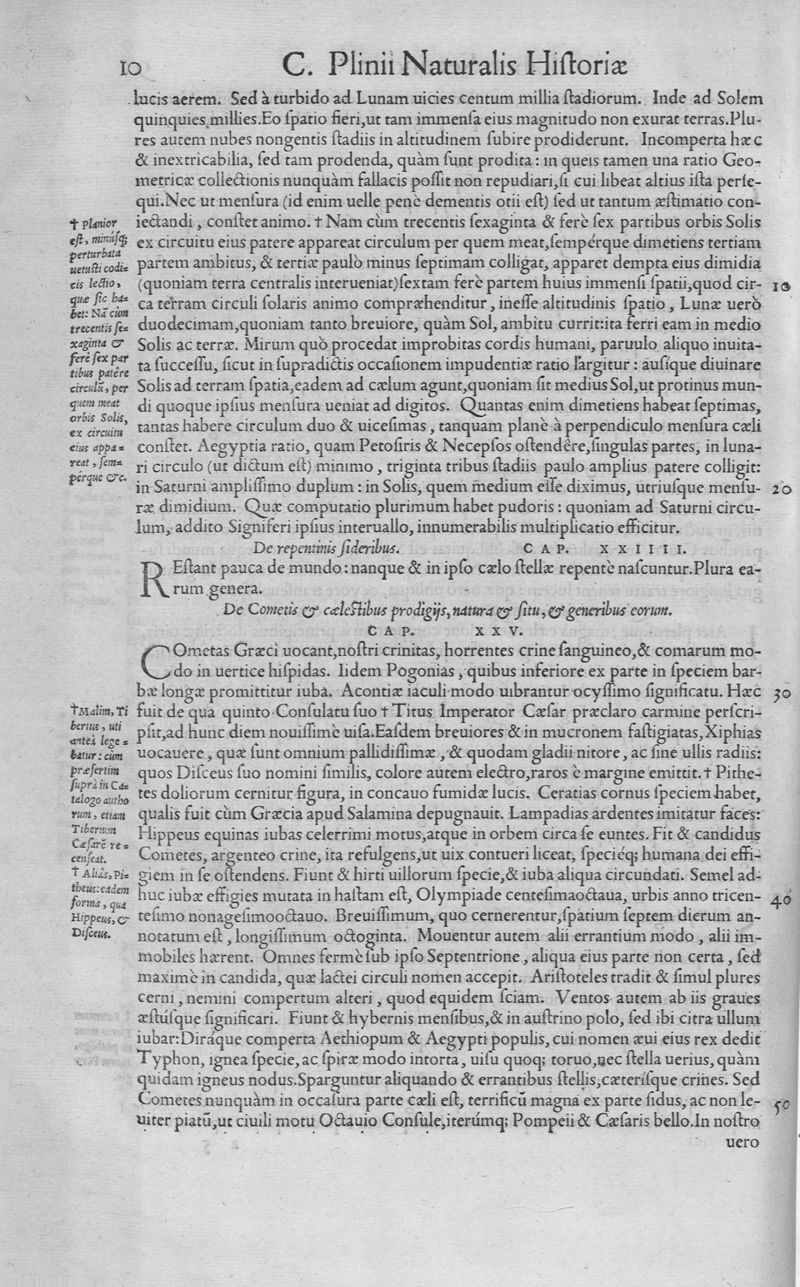 10 C. Plinii Naturalis Hiſtoriæ
lucis aerem. Sed à turbido ad Lunam uicies centum millia ſtadiorum. Inde ad Solem
quinquies millies. Eo ſpatio fieri, ut tam immenſa eius magnitudo non exurat terras. Plu-
res autem nubes nongentis ſtadiis in altitudinem ſubire prodiderunt. Incomperta hæc
& inextricabilia, ſed tam prodenda, quàm ſunt prodita: in queis tamen una ratio Geo-
metricæ collectionis nunquàm fallacis poſſit non repudiari, ſi cui libeat altius iſta perſe-
qui. Nec ut menſura (id enim uelle penè dementis otii eſt) ſed ut tantum æſtimatio con-
iectandi, conſtet animo. † Nam cùm trecentis ſexaginta & ferè ſex partibus orbis Solis
ex circuitu eius patere appareat circulum per quem meat, ſempérque dimetiens tertiam
partem ambitus, & tertiæ paulò minus ſeptimam colligat, apparet dempta eius dimidia
(quoniam terra centralis interueniat) ſextam ferè partem huius immenſi ſpatii, quod cir- 10
ca terram circuli ſolaris animo compræhenditur, ineſſe altitudinis ſpatio, Lunæ uerò
duodecimam, quoniam tanto breuiore, quàm Sol, ambitu currit: ita ferri eam in medio
Solis ac terræ. Mirum quò procedat improbitas cordis humani, paruulo aliquo inuita-
ta ſucceſſu, ſicut in ſupradictis occaſionem impudentiæ ratio largitur: auſique diuinare
Solis ad terram ſpatia, eadem ad cælum agunt, quoniam ſit medius Sol, ut protinus mun-
di quoque ipſius menſura ueniat ad digitos. Quantas enim dimetiens habeat ſeptimas,
tantas habere circulum duo & uiceſimas, tanquam planè à perpendiculo menſura cæli
conſtet. Aegyptia ratio, quam Petoſiris & Necepſos oſtendêre, ſingulas partes, in luna-
ri circulo (ut dictum eſt) minimo, triginta tribus ſtadiis paulo amplius patere colligit:
in Saturni ampliſſimo duplum: in Solis, quem medium eſſe diximus, utriuſque menſu- 20
ræ dimidium. Quæ computatio plurimum habet pudoris: quoniam ad Saturni circu-
lum, addito Signiferi ipſius interuallo, innumerabilis multiplicatio efficitur.
De repentinis ſideribus. CAP. XXIIII.
REſtant pauca de mundo: nanque & in ipſo cælo ſtellæ repentè naſcuntur. Plura ea-
rum genera.
De Cometis & cæleſtibus prodigijs, natura & ſitu, & generibus eorum.
CAP. XXV.
COmetas Græci uocant, noſtri crinitas, horrentes crine ſanguineo, & comarum mo-
do in uertice hiſpidas. Iidem Pogonias, quibus inferiore ex parte in ſpeciem bar-
bæ longæ promittitur iuba. Acontiæ iaculi modo uibrantur ocyſſimo ſignificatu. Hæc 30
fuit de qua quinto Conſulatu ſuo † Titus Imperator Cæſar præclaro carmine perſcri-
pſit, ad hunc diem nouiſſimè uiſa. Eaſdem breuiores & in mucronem faſtigiatas, Xiphias
uocauere, quæ ſunt omnium pallidiſſimæ, & quodam gladii nitore, ac ſine ullis radiis:
quos Diſceus ſuo nomini ſimilis, colore autem electro, raros è margine emittit. † Pithe-
tes doliorum cernitur figura, in concauo fumidæ lucis. Ceratias cornus ſpeciem habet,
qualis fuit cùm Græcia apud Salamina depugnauit. Lampadias ardentes imitatur faces:
Hippeus equinas iubas celerrimi motus, atque in orbem circa ſe euntes. Fit & candidus
Cometes, argenteo crine, ita refulgens, ut uix contueri liceat, ſpeciéq; humana dei effi-
giem in ſe oſtendens. Fiunt & hirti uillorum ſpecie, & iuba aliqua circundati. Semel ad-
huc iubæ effigies mutata in haſtam eſt, Olympiade centeſimaoctaua, urbis anno tricen- 40
teſimo nonageſimooctauo. Breuiſſimum, quo cernerentur, ſpatium ſeptem dierum an-
notatum eſt, longiſſimum octoginta. Mouentur autem alii errantium modo, alii im-
mobiles hærent. Omnes fermè ſub ipſo Septentrione, aliqua eius parte non certa, ſed
maximè in candida, quæ lactei circuli nomen accepit. Ariſtoteles tradit & ſimul plures
cerni, nemini compertum alteri, quod equidem ſciam. Ventos autem ab iis graues
æſtúſque ſignificari. Fiunt & hybernis menſibus, & in auſtrino polo, ſed ibi citra ullum
iubar: Diráque comperta Aethiopum & Aegypti populis, cui nomen æui eius rex dedit
Typhon, ignea ſpecie, ac ſpiræ modo intorta, uiſu quoq; toruo, nec ſtella uerius, quàm
quidam igneus nodus. Sparguntur aliquando & errantibus ſtellis, cæteriſque crines. Sed
Cometes nunquàm in occaſura parte cæli eſt, terrificū magna ex parte ſidus, ac non le- 50
uiter piatū, ut ciuili motu Octauio Conſule, iterúmq; Pompeii & Cæſaris bello. In noſtro
uero
† Planior
eſt, minúſq;
perturbata
uetuſti codi=
cis lectio,
quæ ſic ha=
bet: Nā cùm
trecentis ſe=
xaginta &
ferè ſex par
tibus patêre
circulū, per
quem meat
orbis Solis,
ex circuitu
eius appa=
reat, ſem=
pérque &c.
† Malim, Ti
berius, uti
anteà lege=
batur: cùm
præſertim
ſuprà in Ca=
talogo autho
rum, etiam
Tiberium
Cæſarē re=
cenſeat.
† Aliâs, Pi=
theus: eadem
forma, qua
Hippeus, &
Diſceus.